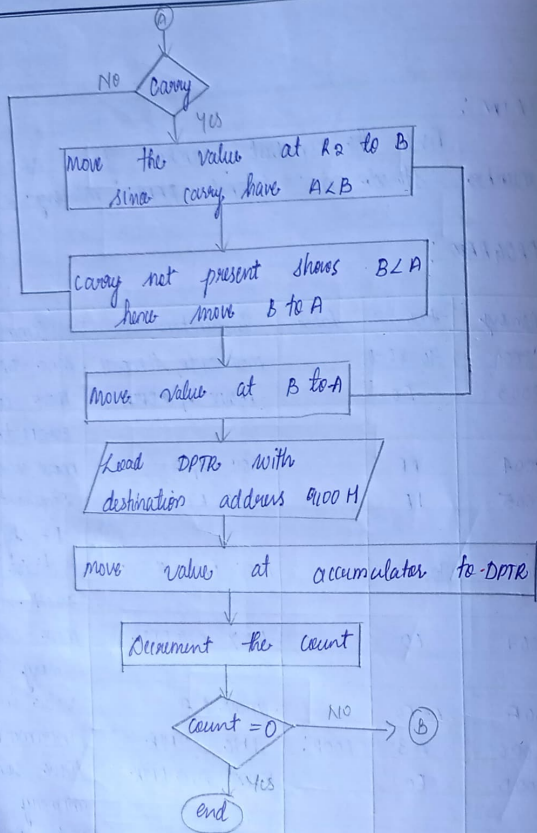 A
Carry
NO
Yes
Move the value at R2 to B
since carry have A<B
carry not present shows B<A
hence move B to A
Move value at B to A
Load DPTR with
destination address 9100 H
Move value at accumulator to DPTR
Decrement the count
count = 0
NO
B
Yes
end